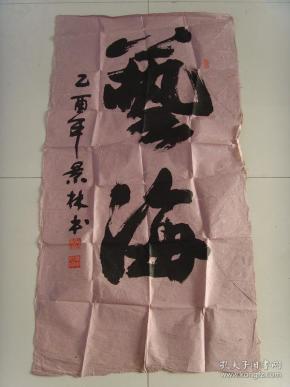 藝海
乙酉年景林书
孔夫子旧书网